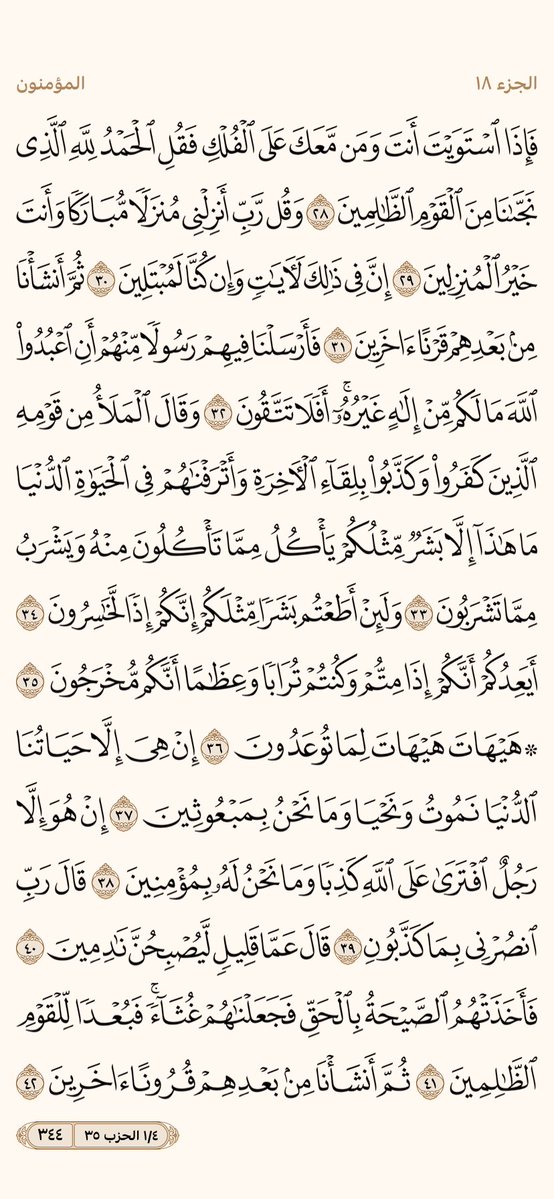 الجزء ١٨
المؤمنون
فَإِذَا ٱسْتَوَيْتَ أَنتَ وَمَن مَّعَكَ عَلَى ٱلْفُلْكِ فَقُلِ ٱلْحَمْدُ لِلَّهِ ٱلَّذِى
نَجَّىٰنَا مِنَ ٱلْقَوْمِ ٱلظَّـٰلِمِينَ ٢٨ وَقُل رَّبِّ أَنزِلْنِى مُنزَلًا مُّبَارَكًا وَأَنتَ
خَيْرُ ٱلْمُنزِلِينَ ٢٩ إِنَّ فِى ذَٰلِكَ لَـَٔايَـٰتٍ وَإِن كُنَّا لَمُبْتَلِينَ ٣٠ ثُمَّ أَنشَأْنَا
مِنۢ بَعْدِهِمْ قَرْنًا ءَاخَرِينَ ٣١ فَأَرْسَلْنَا فِيهِمْ رَسُولًا مِّنْهُمْ أَنِ ٱعْبُدُوا۟
ٱللَّهَ مَا لَكُم مِّنْ إِلَـٰهٍ غَيْرُهُۥٓ ۚ أَفَلَا تَتَّقُونَ ٣٢ وَقَالَ ٱلْمَلَأُ مِن قَوْمِهِ
ٱلَّذِينَ كَفَرُوا۟ وَكَذَّبُوا۟ بِلِقَآءِ ٱلْـَٔاخِرَةِ وَأَتْرَفْنَـٰهُمْ فِى ٱلْحَيَوٰةِ ٱلدُّنْيَا
مَا هَـٰذَآ إِلَّا بَشَرٌ مِّثْلُكُمْ يَأْكُلُ مِمَّا تَأْكُلُونَ مِنْهُ وَيَشْرَبُ
مِمَّا تَشْرَبُونَ ٣٣ وَلَئِنْ أَطَعْتُم بَشَرًا مِّثْلَكُمْ إِنَّكُمْ إِذًا لَّخَـٰسِرُونَ ٣٤
أَيَعِدُكُمْ أَنَّكُمْ إِذَا مِتُّمْ وَكُنتُمْ تُرَابًا وَعِظَـٰمًا أَنَّكُم مُّخْرَجُونَ ٣٥
۞ هَيْهَاتَ هَيْهَاتَ لِمَا تُوعَدُونَ ٣٦ إِنْ هِىَ إِلَّا حَيَاتُنَا
ٱلدُّنْيَا نَمُوتُ وَنَحْيَا وَمَا نَحْنُ بِمَبْعُوثِينَ ٣٧ إِنْ هُوَ إِلَّا
رَجُلٌ ٱفْتَرَىٰ عَلَى ٱللَّهِ كَذِبًا وَمَا نَحْنُ لَهُۥ بِمُؤْمِنِينَ ٣٨ قَالَ رَبِّ
ٱنصُرْنِى بِمَا كَذَّبُونِ ٣٩ قَالَ عَمَّا قَلِيلٍ لَّيُصْبِحُنَّ نَـٰدِمِينَ ٤٠
فَأَخَذَتْهُمُ ٱلصَّيْحَةُ بِٱلْحَقِّ فَجَعَلْنَـٰهُمْ غُثَآءً ۚ فَبُعْدًا لِّلْقَوْمِ
ٱلظَّـٰلِمِينَ ٤١ ثُمَّ أَنشَأْنَا مِنۢ بَعْدِهِمْ قُرُونًا ءَاخَرِينَ ٤٢
١/٤ الحزب ٣٥ ٣٤٤